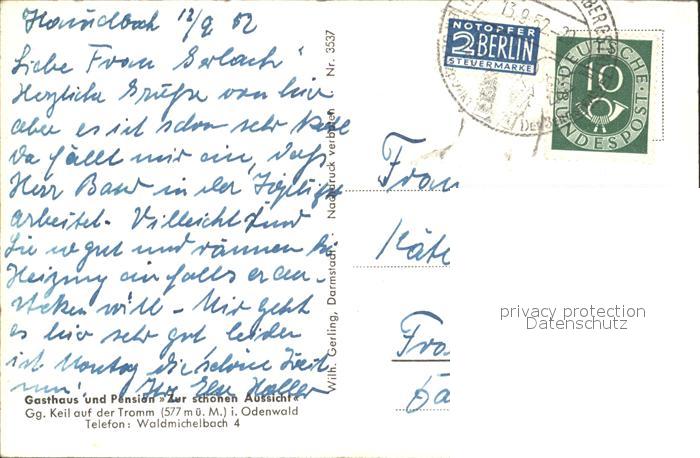 12/9 52
Liebe Frau Gerlach!
Herzliche Grüße von hier
aber es ist schon sehr kalt
Da fällt mir ein, daß
Herr Band in der Ziegelei
arbeitet. Vielleicht sind
Sie so gut und räumen die
Heizung ein falls er an-
stecken will – Mir geht
es hier sehr gut leider
ist Montag die schöne Zeit
um! Ihre Else Haller
Gasthaus und Pension »Zur schönen Aussicht«
Gg. Keil auf der Tromm (577 m ü. M.) i. Odenwald
Telefon: Waldmichelbach 4
Wilh. Gerling, Darmstadt · Nachdruck verboten Nr. 3537
NOTOPFER
2 BERLIN
STEUERMARKE
13.9.52
DEUTSCHE BUNDESPOST
10
Frau
Käte
Fra
privacy protection
Datenschutz